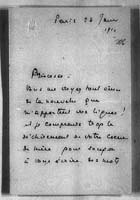 Paris 26 Janv
191
Princesse,
Vous me voyez tout émue
de la nouvelle que
m'apportent vos lignes !
et je comprends trop le
déchirement de votre coeur
de mère pour songer
à vous écrire des mots